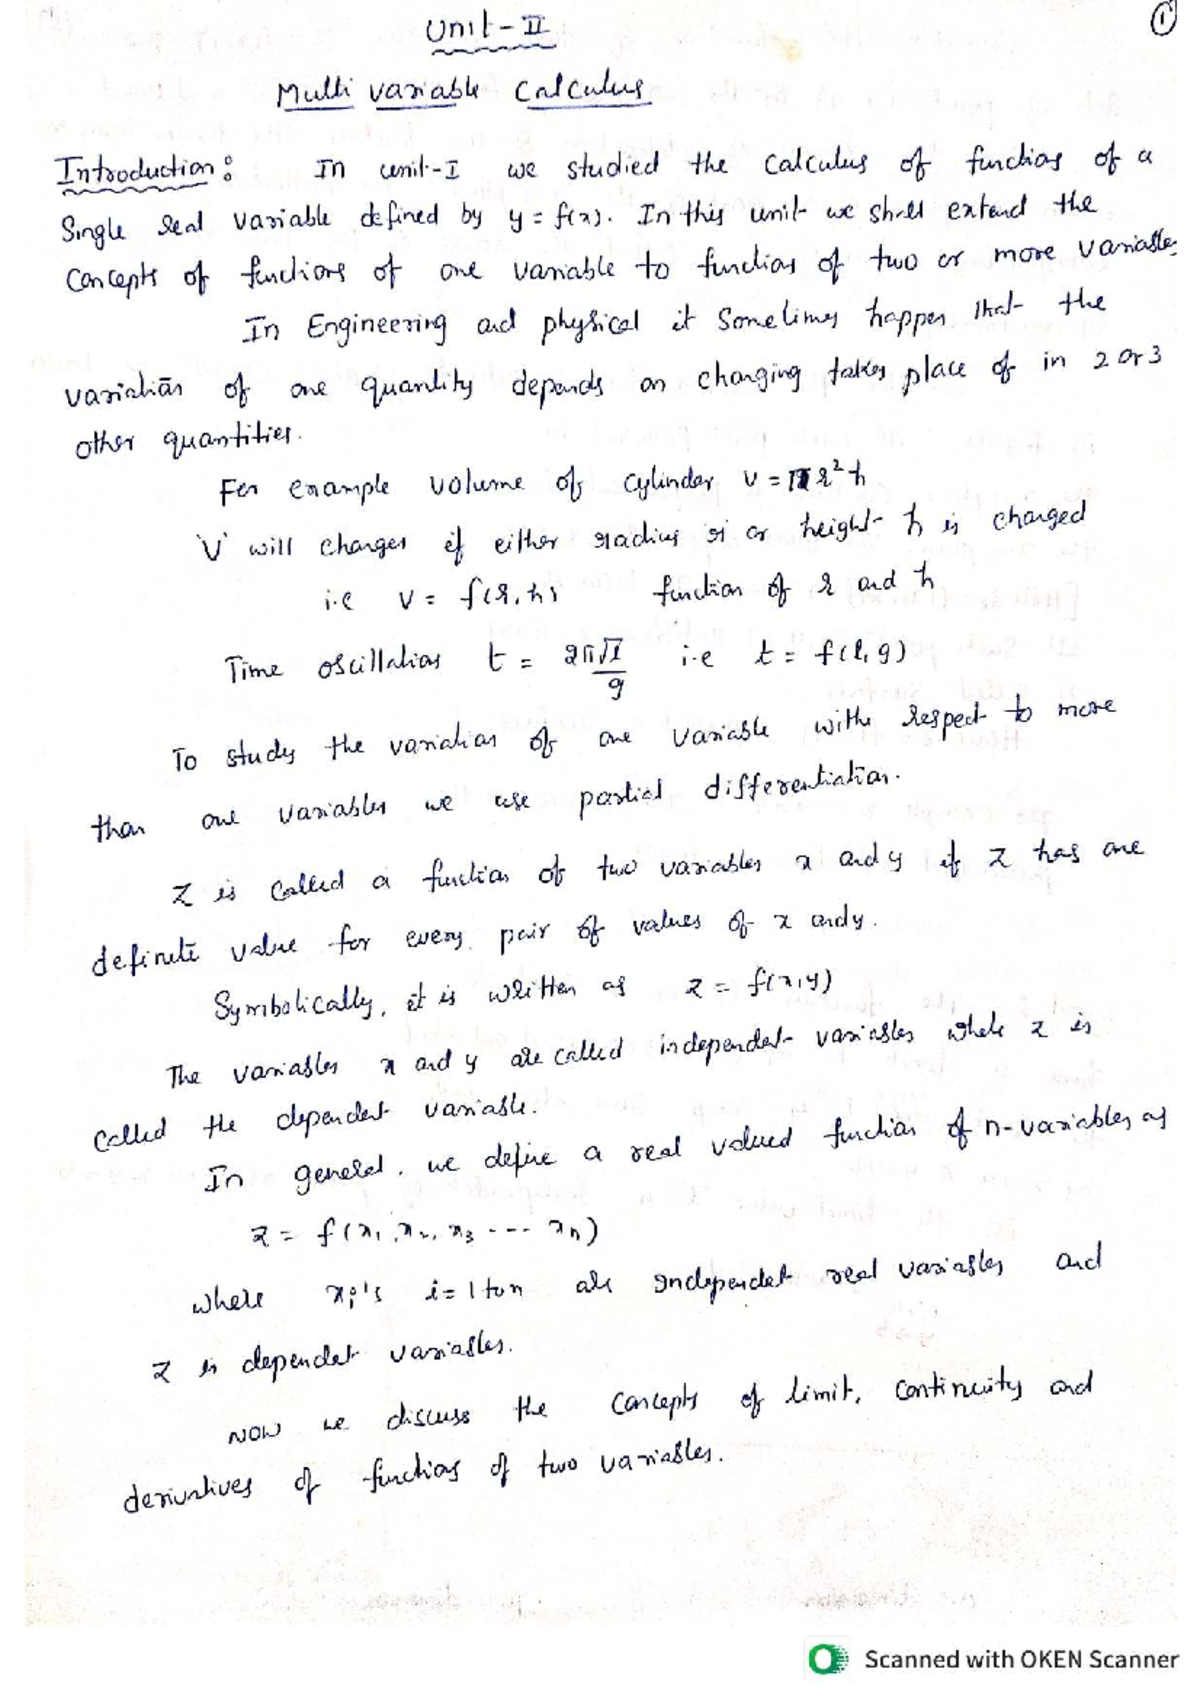 Unit-II
1
Multi variable Calculus
Introduction: In unit-I we studied the Calculus of functions of a
Single real variable defined by y = f(x). In this unit we shall extend the
Concepts of functions of one variable to functions of two or more variables
In Engineering and physical it Sometimes happen that the
variation of one quantity depends on changing takes place of in 2 or 3
other quantities.
For example volume of cylinder v = πr²h
'V' will changes if either radius r or height h is changed
i.e v = f(r, h) function of r and h
Time oscillations t = 2π√l/g i.e t = f(l, g)
To study the variation of one variable withe respect to more
than one variables we use partial differentiation.
Z is called a function of two variables x and y if z has one
definite value for every pair of values of x and y.
Symbolically, it is written as z = f(x, y)
The variables x and y are called independent variables where z is
Called the dependent variable.
In general, we define a real valued function of n-variables as
z = f(x₁, x₂, x₃ ---- xₙ)
where xᵢ's i = 1 to n are independent real variables and
z is dependent variables.
NOW we discuss the Concepts of limit, continuity and
derivatives of functions of two variables.
Scanned with OKEN Scanner